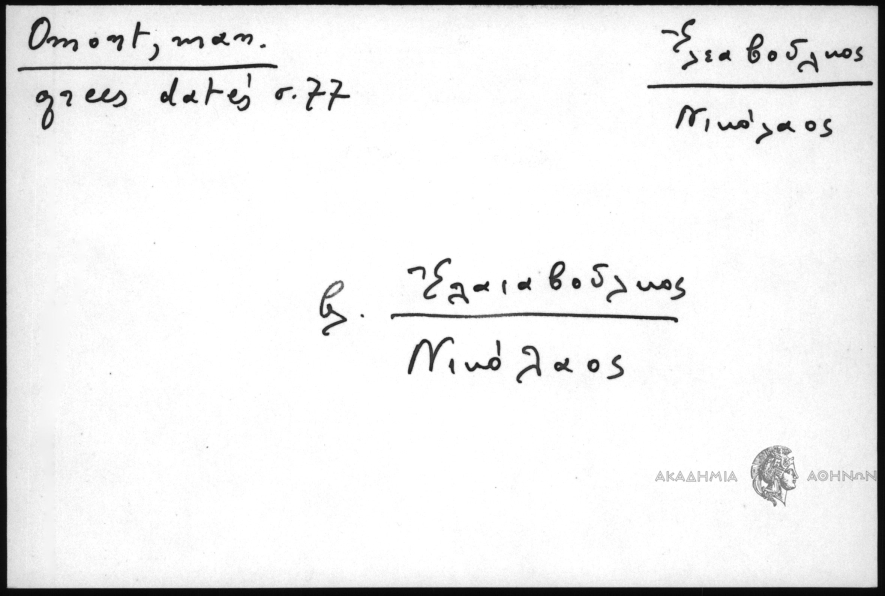 Omont, man.
grecs datés σ. 77
Ἐλεαβοῦλκος
Νικόλαος
βλ. Ἐλαιαβοῦλκος
Νικόλαος
ΑΚΑΔΗΜΙΑ ΑΘΗΝΩΝ